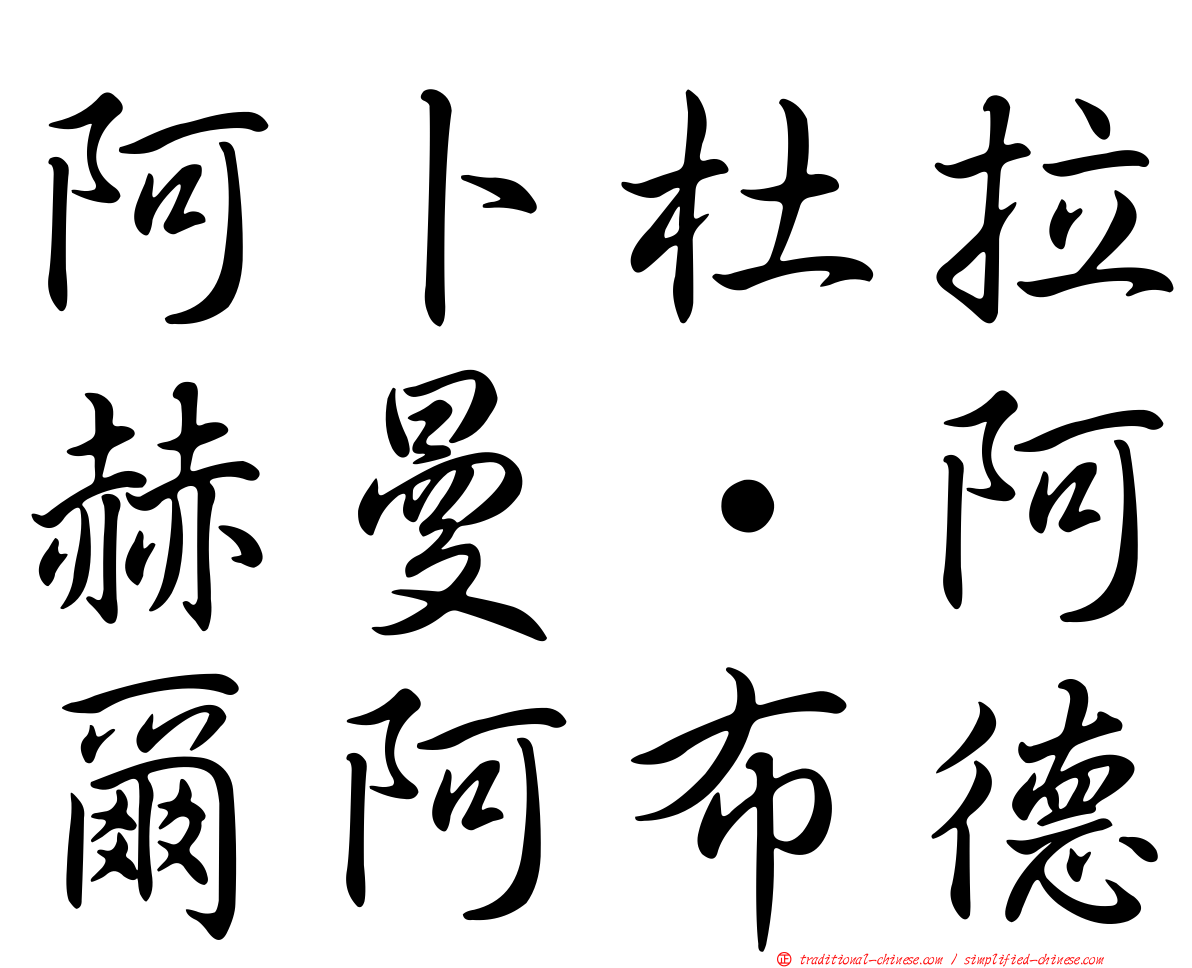 阿卜杜拉
赫曼·阿
爾阿布德
正 traditional-chinese.com / simplified-chinese.com